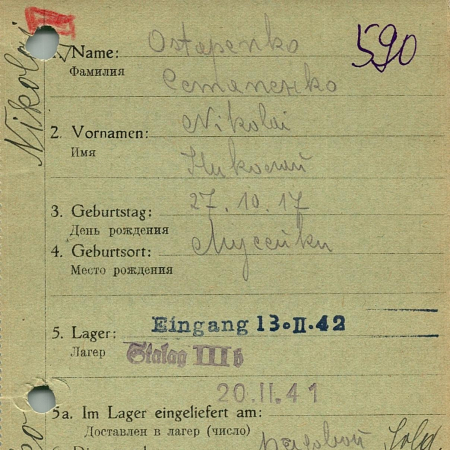 Nikolai
590
1. Name: Ostapenko
Фамилия
Степаненко
2. Vornamen: Nikolai
Имя
Николай
3. Geburtstag: 27.10.17
День рождения
4. Geburtsort: Мусейки
Место рождения
Eingang 13.II.42
5. Lager:
Лагерь
Stalag III b
20.II.41
5a. Im Lager eingeliefert am:
Доставлен в лагерь (число)